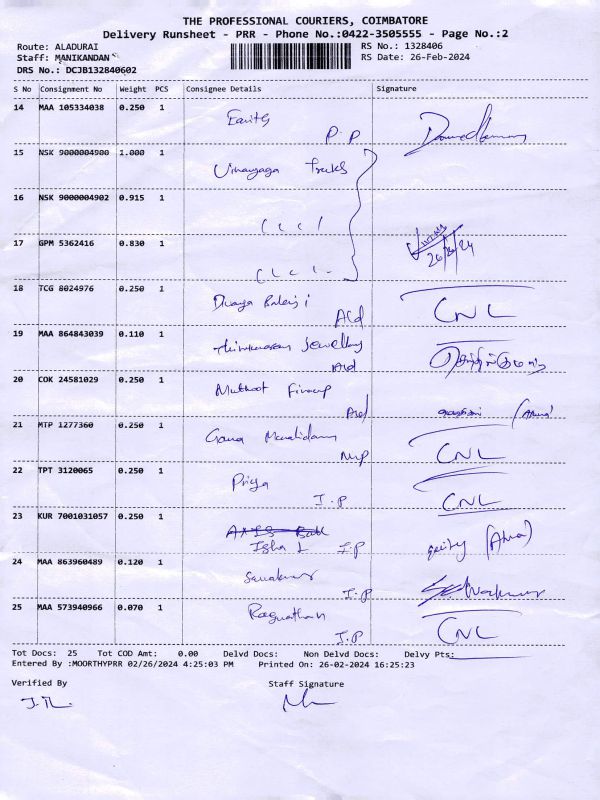 THE PROFESSIONAL COURIERS, COIMBATORE
Delivery Runsheet - PRR - Phone No.:0422-3505555 - Page No.:2
Route: ALADURAI RS No.: 1328406
Staff: MANIKANDAN RS Date: 26-Feb-2024
DRS No.: DCJB132840602
S No Consignment No Weight PCS Consignee Details Signature
14 MAA 105334038 0.250 1
Equitas
P.P
15 NSK 9000004900 1.000 1
Vinayaga Trucks
16 NSK 9000004902 0.915 1
17 GPM 5362416 0.830 1
26/2/24
18 TCG 8024976 0.250 1
Balaji
Ald CNL
19 MAA 864843039 0.110 1
Jewellery
Ald
20 COK 24581029 0.250 1
Muthoot Fincorp
Ald
21 MTP 1277360 0.250 1
CNL
22 TPT 3120065 0.250 1
Priya
I.P CNL
23 KUR 7001031057 0.250 1
Isha L I.P
24 MAA 863960489 0.120 1
I.P Selvakumar
25 MAA 573940966 0.070 1
Ragunathan
I.P CNL
Tot Docs: 25 Tot COD Amt: 0.00 Delvd Docs: Non Delvd Docs: Delvy Pts:
Entered By :MOORTHYPRR 02/26/2024 4:25:03 PM Printed On: 26-02-2024 16:25:23
Verified By Staff Signature